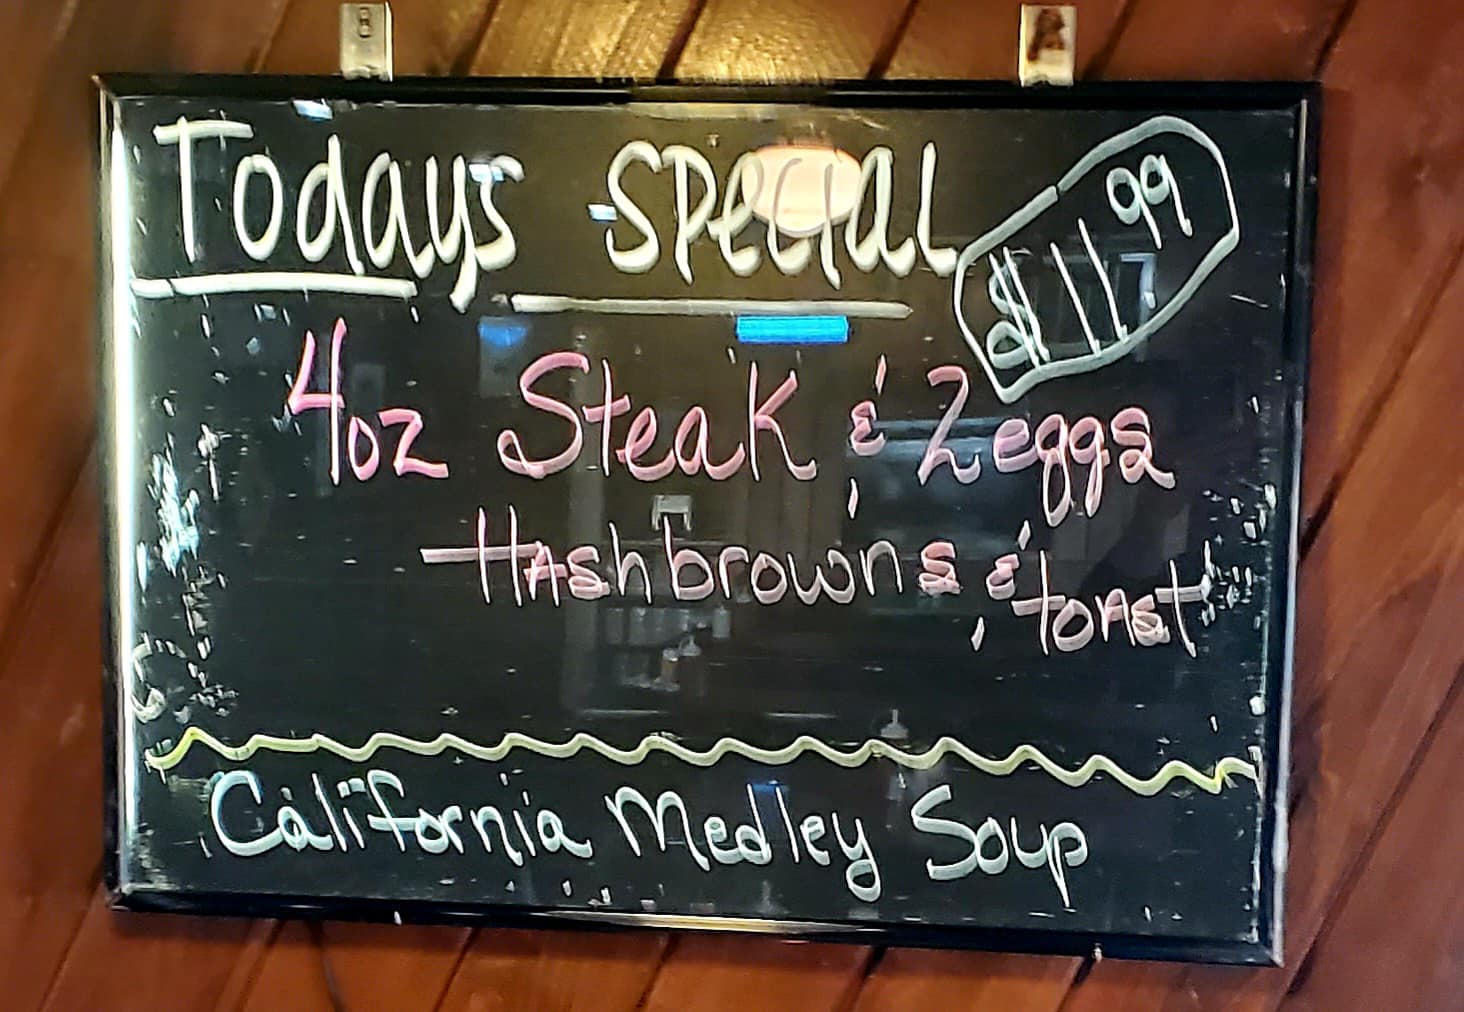 Todays special
$11.99
4oz Steak & 2 eggs
Hashbrowns & toast
California Medley Soup